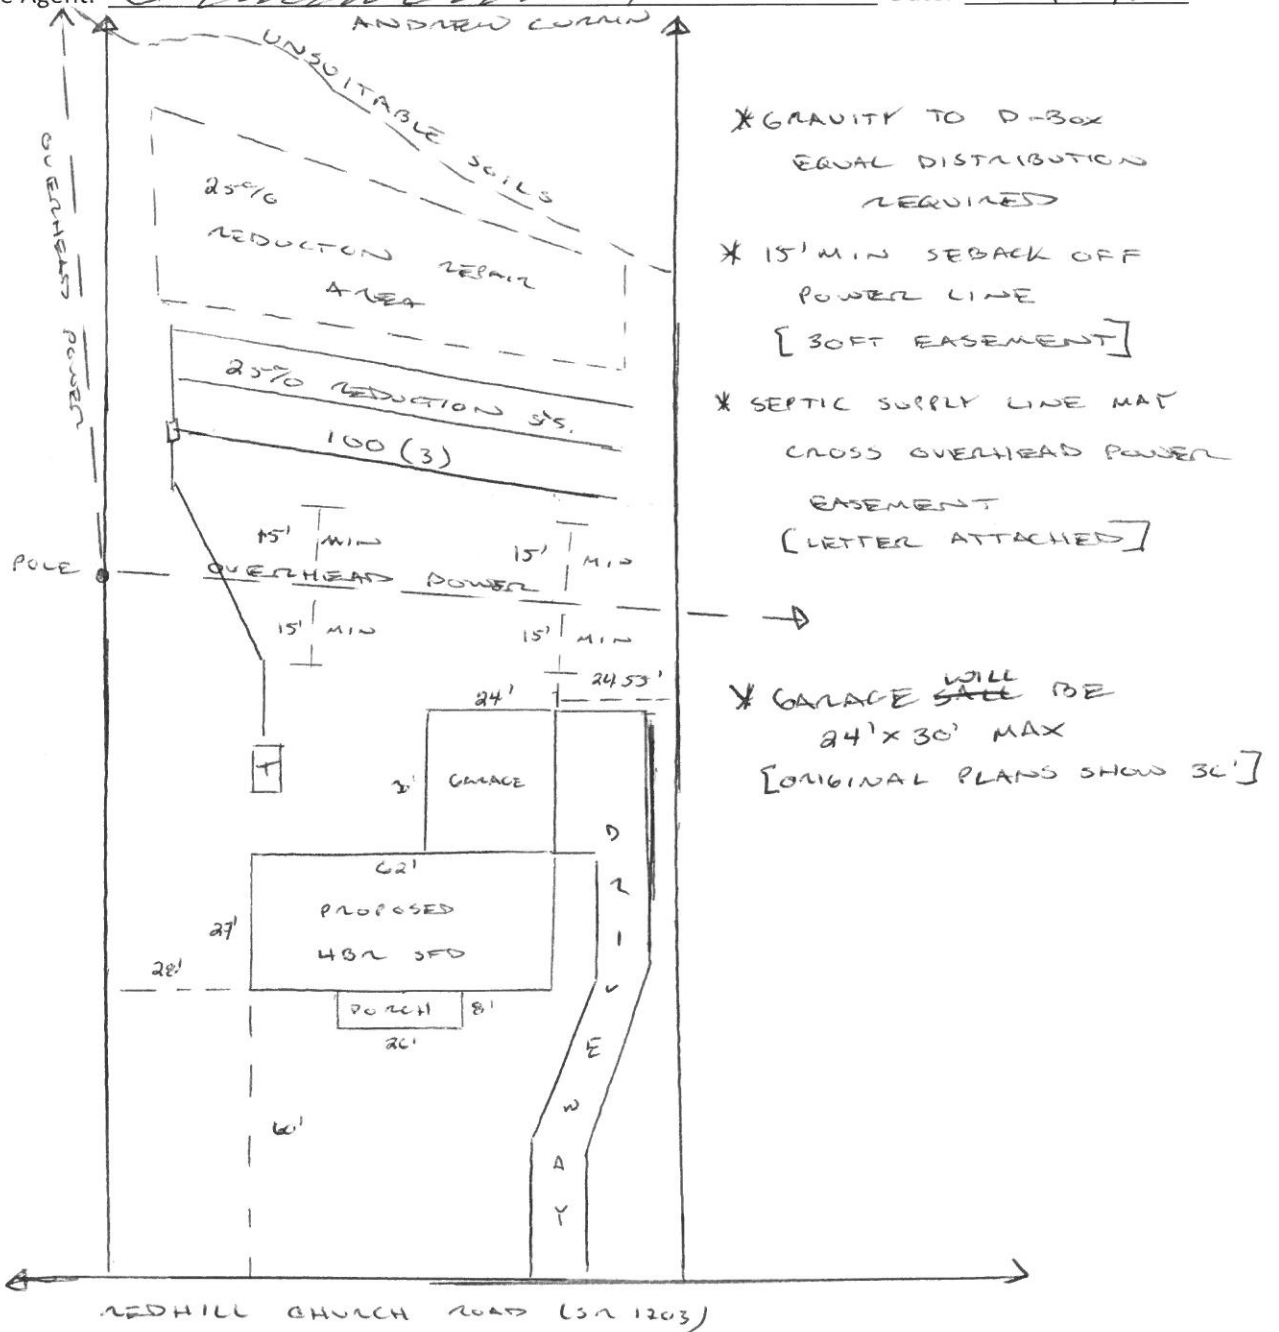 e Agent:
Date:
ANDREW CURRIN
UNSUITABLE SOILS
OVERHEAD POWER
25%
REDUCTON REPAIR
AREA
25% REDUCTION SYS.
100 (3)
15' MIN
15' MIN
POLE
OVERHEAD POWER
15' MIN
15' MIN
24'
24.53'
T
30'
GARAGE
62'
PROPOSED
4BR SFD
27'
28'
PORCH
8'
26'
60'
DRIVEWAY
REDHILL CHURCH ROAD (SR 1203)
* GRAVITY TO D-BOX
EQUAL DISTRIBUTION
REQUIRED
* 15' MIN SEBACK OFF
POWER LINE
[30FT EASEMENT]
* SEPTIC SUPPLY LINE MAY
CROSS OVERHEAD POWER
EASEMENT
[LETTER ATTACHED]
* GARAGE WILL BE
24' X 30' MAX
[ORIGINAL PLANS SHOW 36']